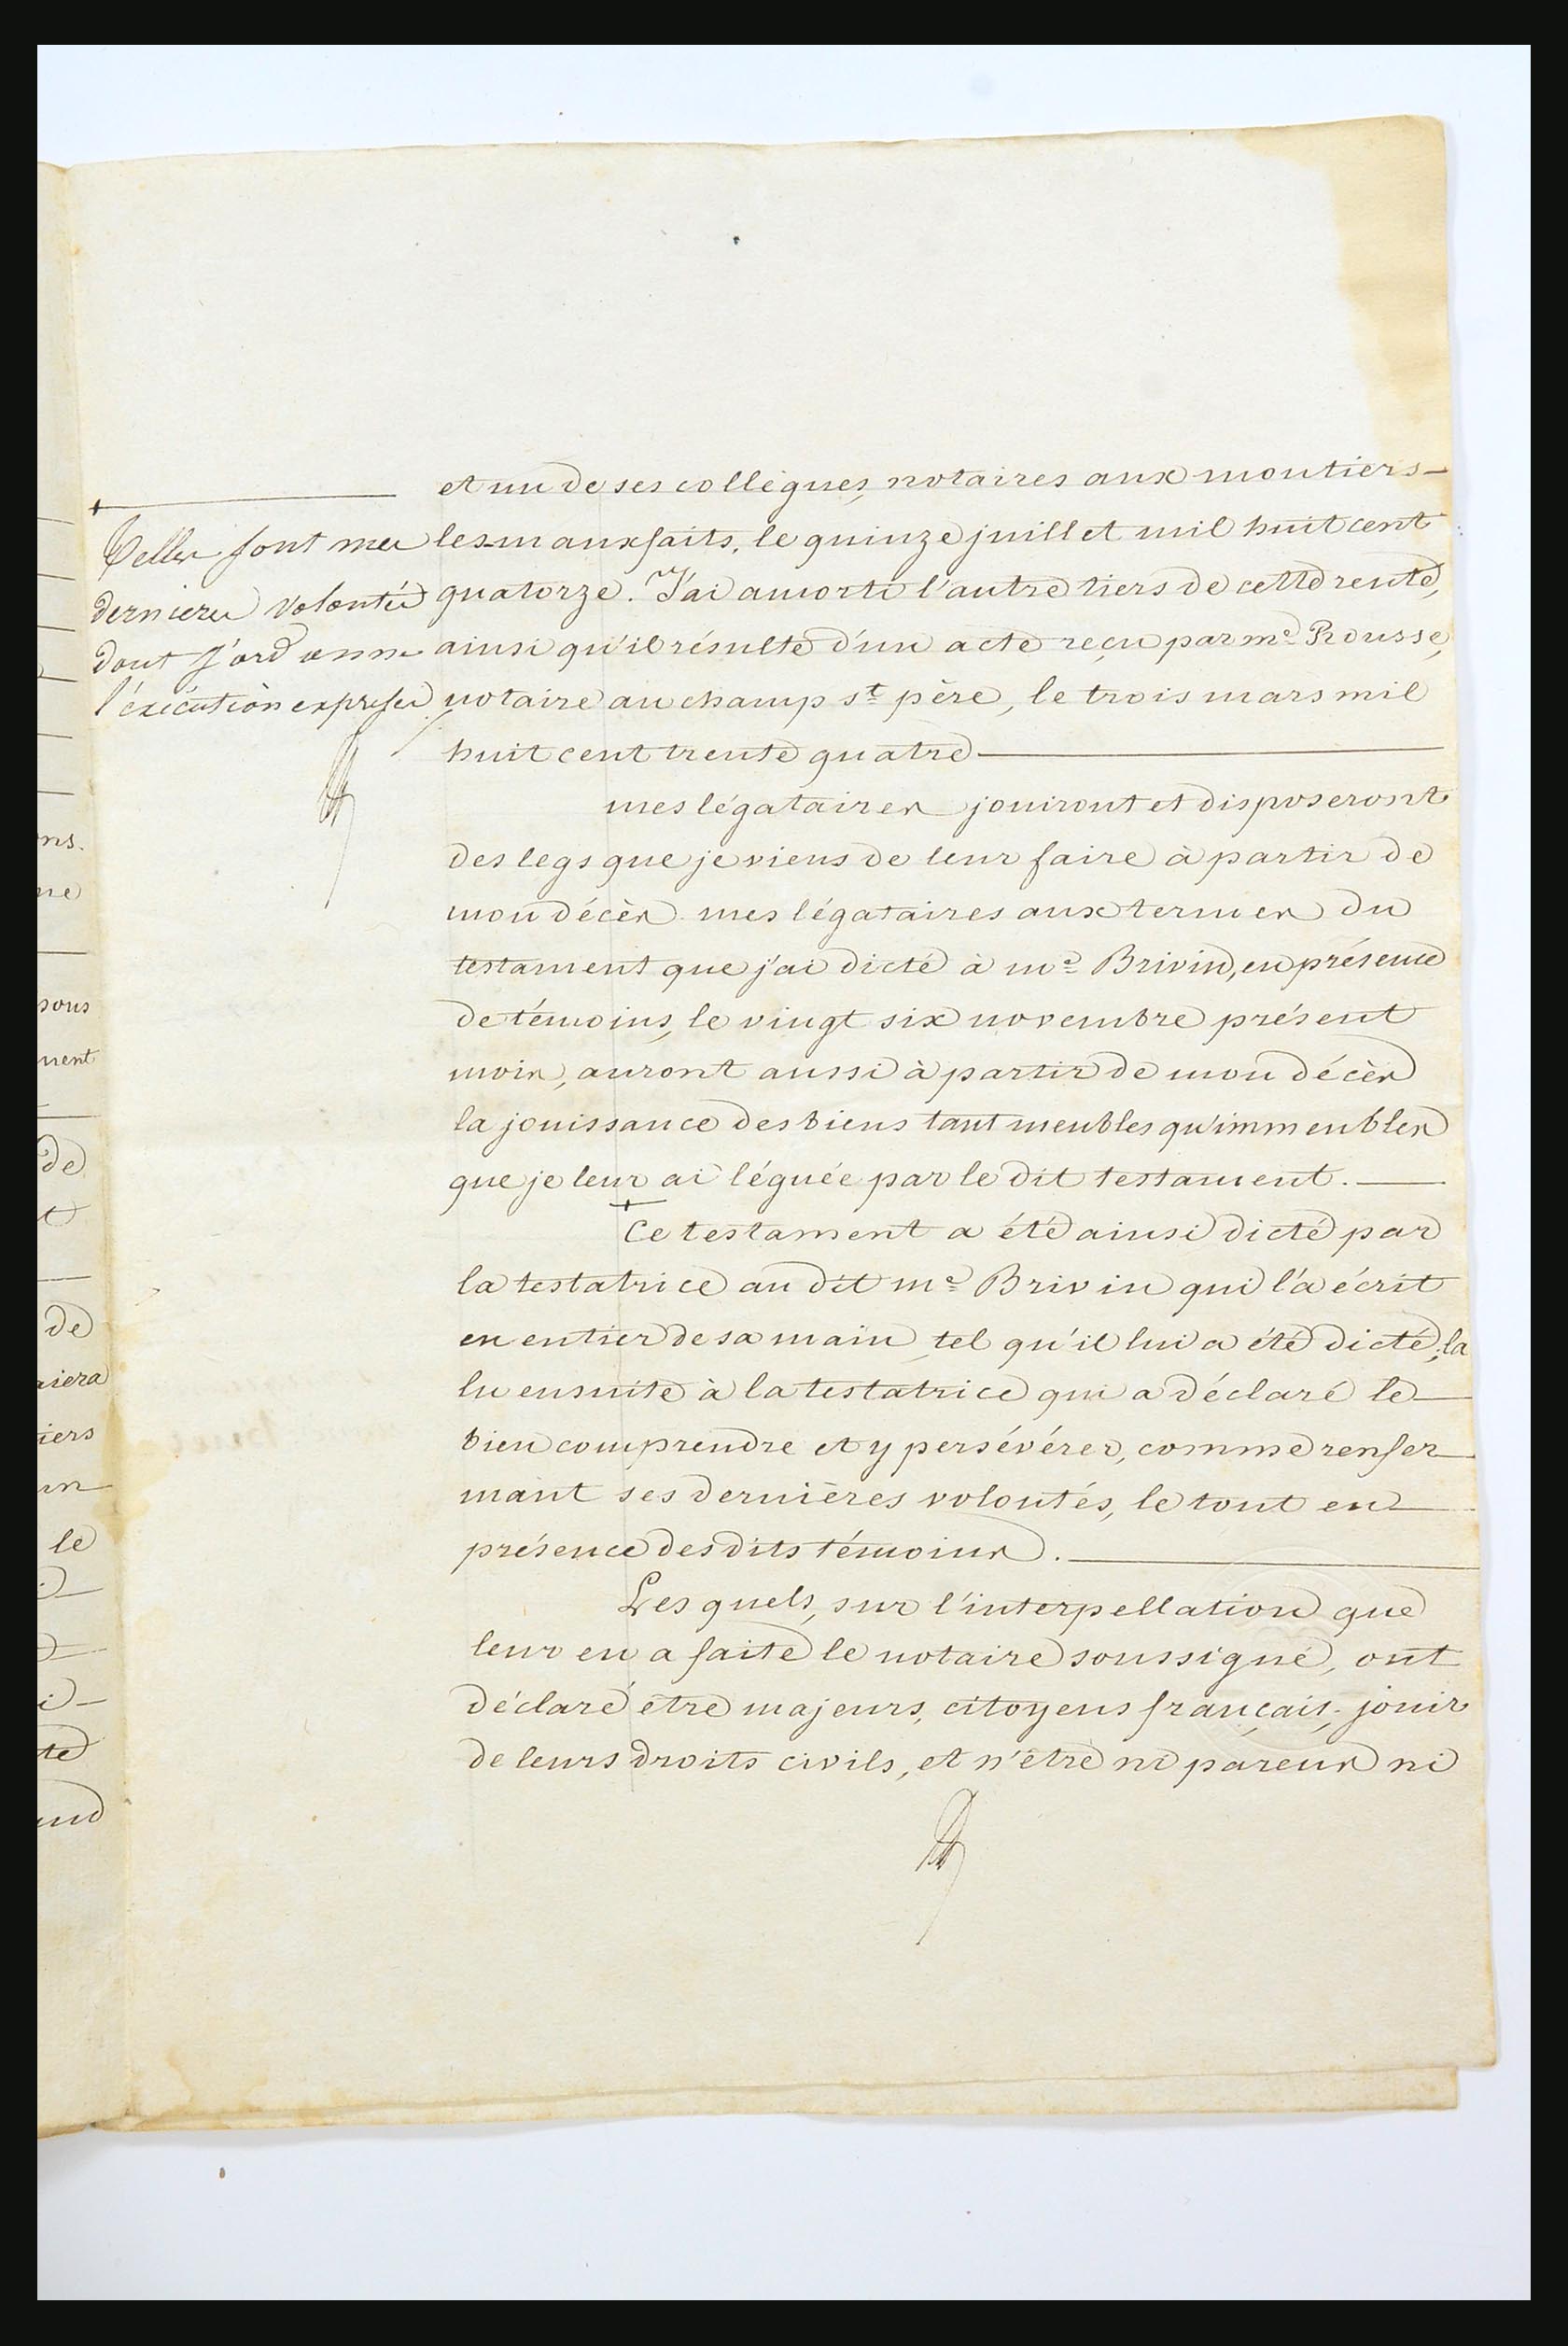 et un de ses collègues, notaires aux moutiers-
les-mauxfaits, le quinze juillet mil huit cent
quatorze. J'ai amorti l'autre tiers de cette rente,
ainsi qu'il résulte d'un acte reçu par me Rousse,
notaire au champ st père, le trois mars mil
huit cent trente quatre
mes légataires jouiront et disposeront
des legs que je viens de leur faire à partir de
mon décès mes légataires aux termes du
testament que j'ai dicté à me Brivin, en présence
de témoins, le vingt six novembre présent
mois, auront aussi à partir de mon décès
la jouissance des biens tant meubles qu'immeubles
que je leur ai léguée par le dit testament.
Ce testament a été ainsi dicté par
la testatrice au dit me Brivin qui l'a écrit
en entier de sa main, tel qu'il lui a été dicté, la
lu ensuite à la testatrice qui a déclaré le
bien comprendre et y persévérer, comme renfer
mant ses dernières volontés, le tout en
présence desdits témoins.
Les quels, sur l'interpellation que
leur en a faite le notaire soussigné, ont
déclaré être majeurs, citoyens français, jouir
de leurs droits civils, et n'être ni parens ni
Telles sont mes
dernieres volontés
dont j'ordonne
l'éxécution expresse
ns.
ne
sous
ment
de
t
de
aiera
iers
un
le
te